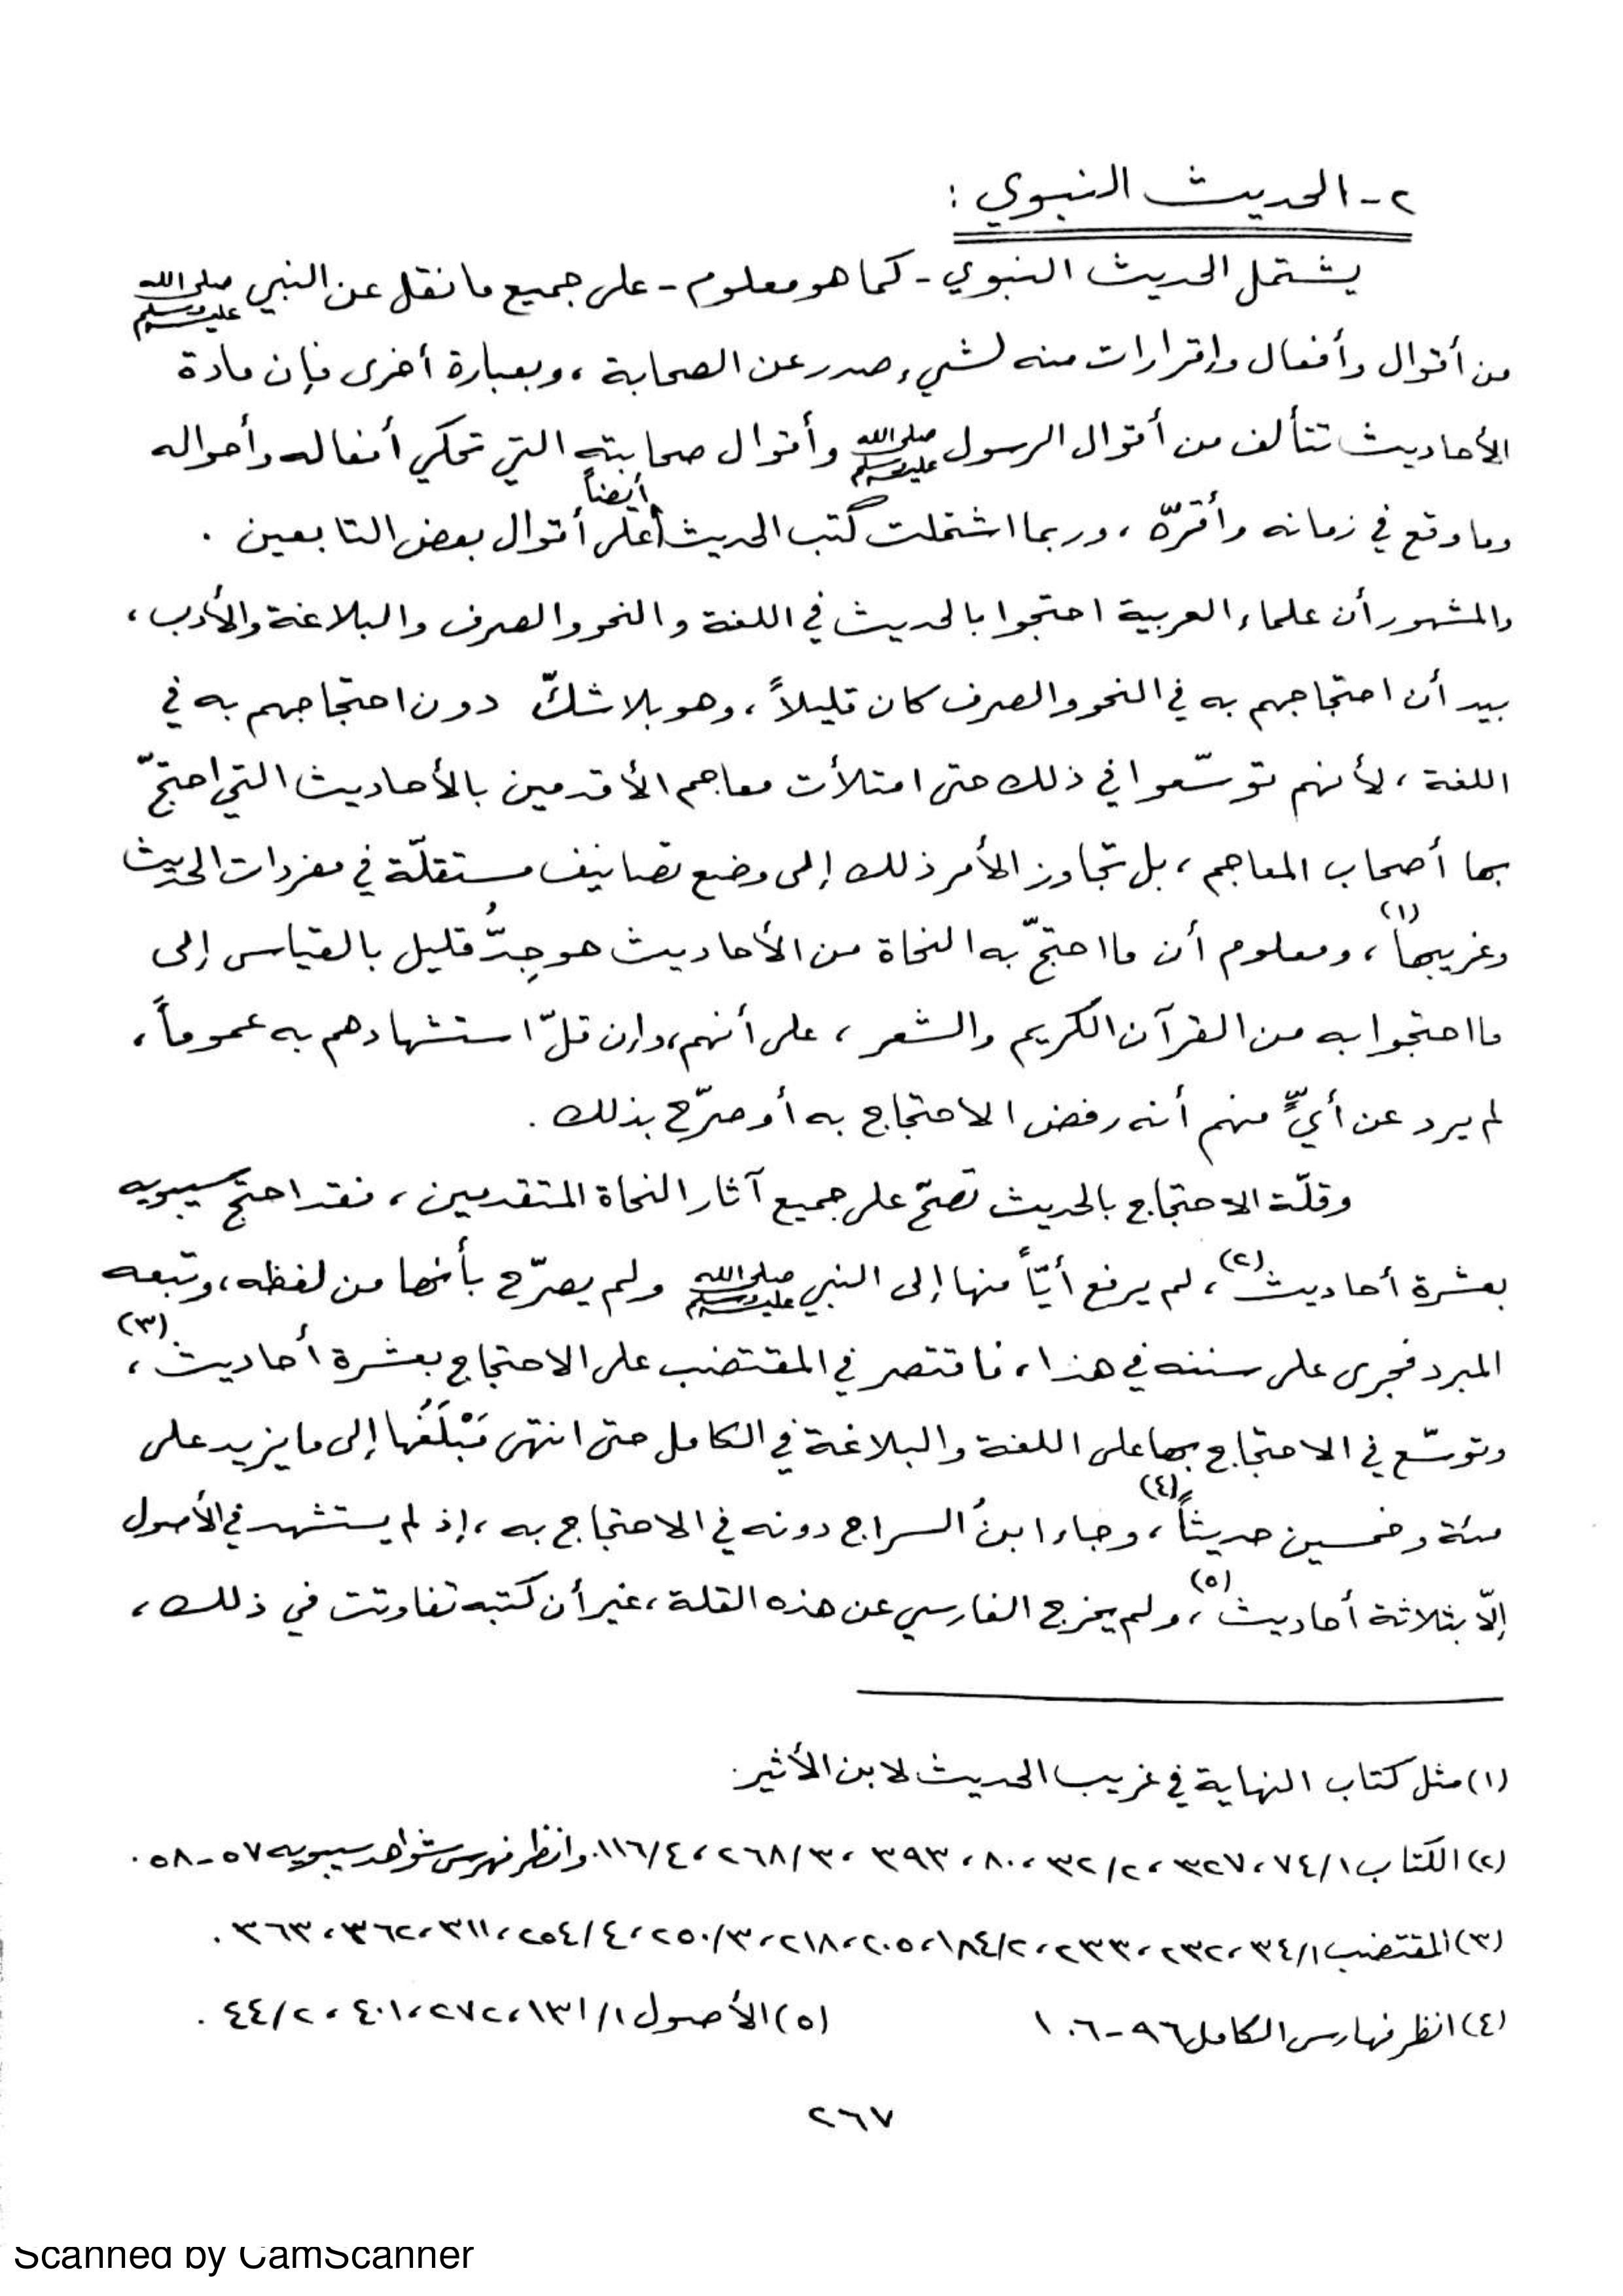 ٢- الحديث النبوي :
يشتمل الحديث النبوي - كما هو معلوم - على جميع ما نقل عن النبي صلى الله عليه وسلم
من أقوال وأفعال وإقرارات منه لشيء صدر عن الصحابة ، وبعبارة أخرى فإن مادة
الأحاديث تتألف من أقوال الرسول صلى الله عليه وسلم وأقوال صحابته التي تحكي أفعاله وأحواله
وما وقع في زمانه وأقرّه ، وربما اشتملت كتب الحديث أيضاً على أقوال بعض التابعين .
والمشهور أن علماء العربية احتجوا بالحديث في اللغة والنحو والصرف والبلاغة والأدب ،
بيد أن احتجاجهم به في النحو والصرف كان قليلاً ، وهو بلا شكّ دون احتجاجهم به في
اللغة ، لأنهم توسّعوا في ذلك حتى امتلأت معاجم الأقدمين بالأحاديث التي احتجّ
بها أصحاب المعاجم ، بل تجاوز الأمر ذلك إلى وضع تصانيف مستقلّة في مفردات الحديث
وغريبها (١) ، ومعلوم أن ما احتجّ به النحاة من الأحاديث هو جِدُّ قليل بالقياس إلى
ما احتجوا به من القرآن الكريم والشعر ، على أنهم ، وإن قلّ استشهادهم به عموماً ،
لم يرد عن أيٍّ منهم أنه رفض الاحتجاج به أو صرّح بذلك .
وقلّة الاحتجاج بالحديث تصحّ على جميع آثار النحاة المتقدمين ، فقد احتج سيبويه
بعشرة أحاديث (٢) ، لم يرفع أيّاً منها إلى النبي صلى الله عليه وسلم ولم يصرّح بأنها من لفظه ، وتبعه
المبرد فجرى على سننه في هذا ، فاقتصر في المقتضب على الاحتجاج بعشرة أحاديث (٣) ،
وتوسّع في الاحتجاج بها على اللغة والبلاغة في الكامل حتى انتهى مَبْلَغُها إلى ما يزيد على
مئة وخمسين حديثاً (٤) ، وجاء ابنُ السراج دونه في الاحتجاج به ، إذ لم يستشهد في الأصول
إلّا بثلاثة أحاديث (٥) ، ولم يخرج الفارسي عن هذه القلة ، غير أن كتبه تفاوتت في ذلك ،
(١) مثل كتاب النهاية في غريب الحديث لابن الأثير .
(٢) الكتاب ٧٤/١ ، ٣٢٧ ، ٣٢/٢ ، ٨٠ ، ٣٩٣ ، ٢٦٨/٣ ، ١١٦/٤ . وانظر فهرس شواهد سيبويه ٥٧-٥٨ .
(٣) المقتضب ٣٤/١ ، ٢٣٢ ، ٢٣٣ ، ١٨٤/٢ ، ٢٠٥ ، ٢١٨ ، ٢٥٠/٣ ، ٢٥٤/٤ ، ٣١١ ، ٣٦٢ ، ٣٦٣ .
(٤) انظر فهارس الكامل ٩٦-١٠٦ (٥) الأصول ١٣١/١ ، ٢٧٢ ، ٤٠١ ، ٤٤/٢ .
٢٦٧
Scanned by CamScanner